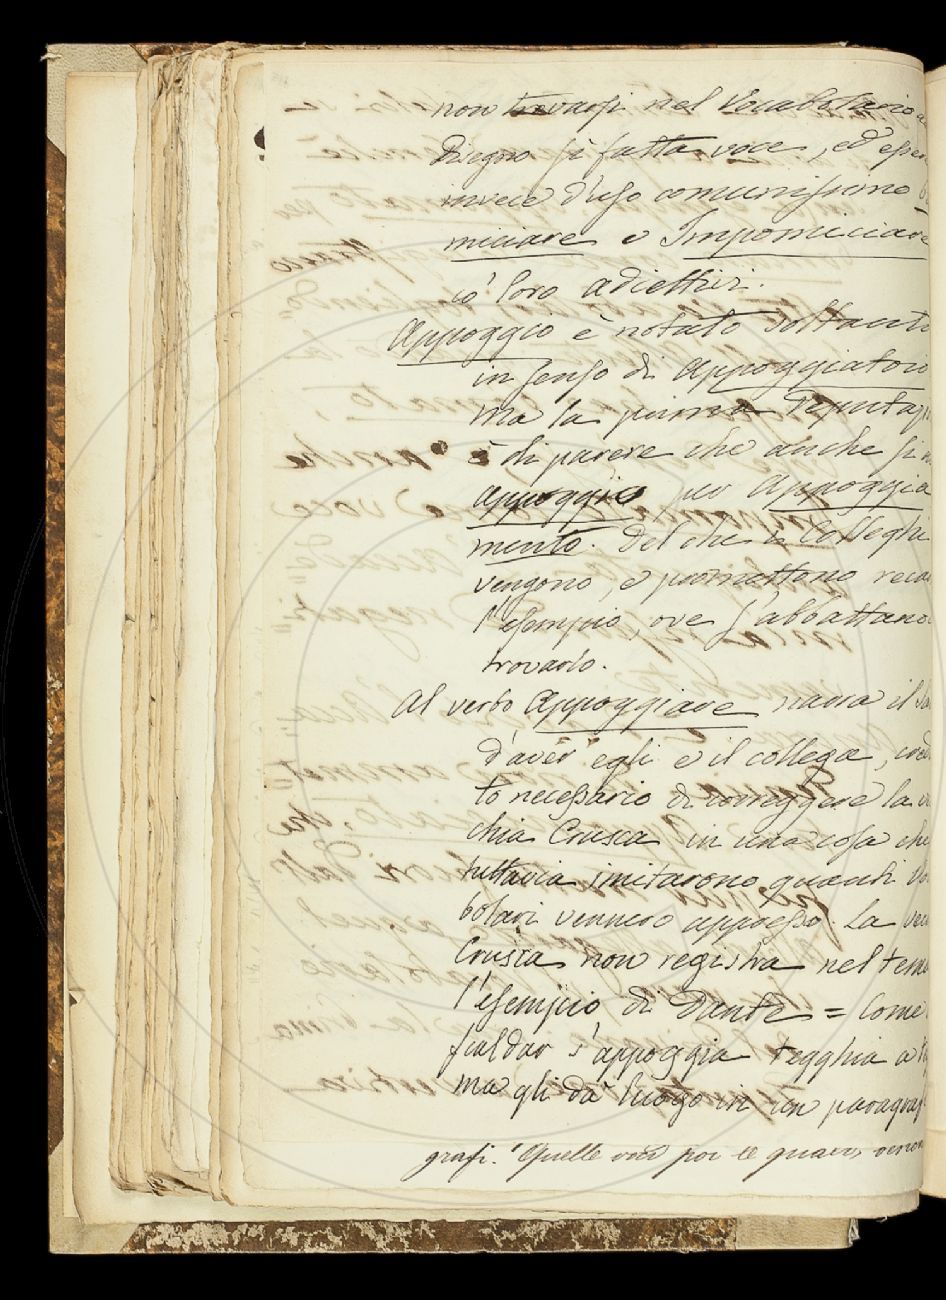 non trovarsi nel Vocabolario
disegno sì fatta voce, ed esser
invece d'uso comunissimo
miciare e Impomiciare
co' loro adiettivi.
Appoggio è notato soltanto
in senso di Appoggiatoio
ma la prima Deputaz
è di parere che anche si
appoggio per Appoggia
mento. Del che i Colleghi
vengono, e promettono reca
l'esempio, ove s'abbattano
trovarlo.
Al verbo Appoggiare narra il
d'aver egli e il collega, cred
to necessario di correggere la vec
chia Crusca in una cosa che
tuttavia imitarono quanti Vo
bolari vennero appresso. La vec
Crusca non registra nel tema
l'esempio di Dante = Come
scaldar s'appoggia tegghia a
ma gli dà luogo in un paragraf
grafi. Quelle voci poi le quali